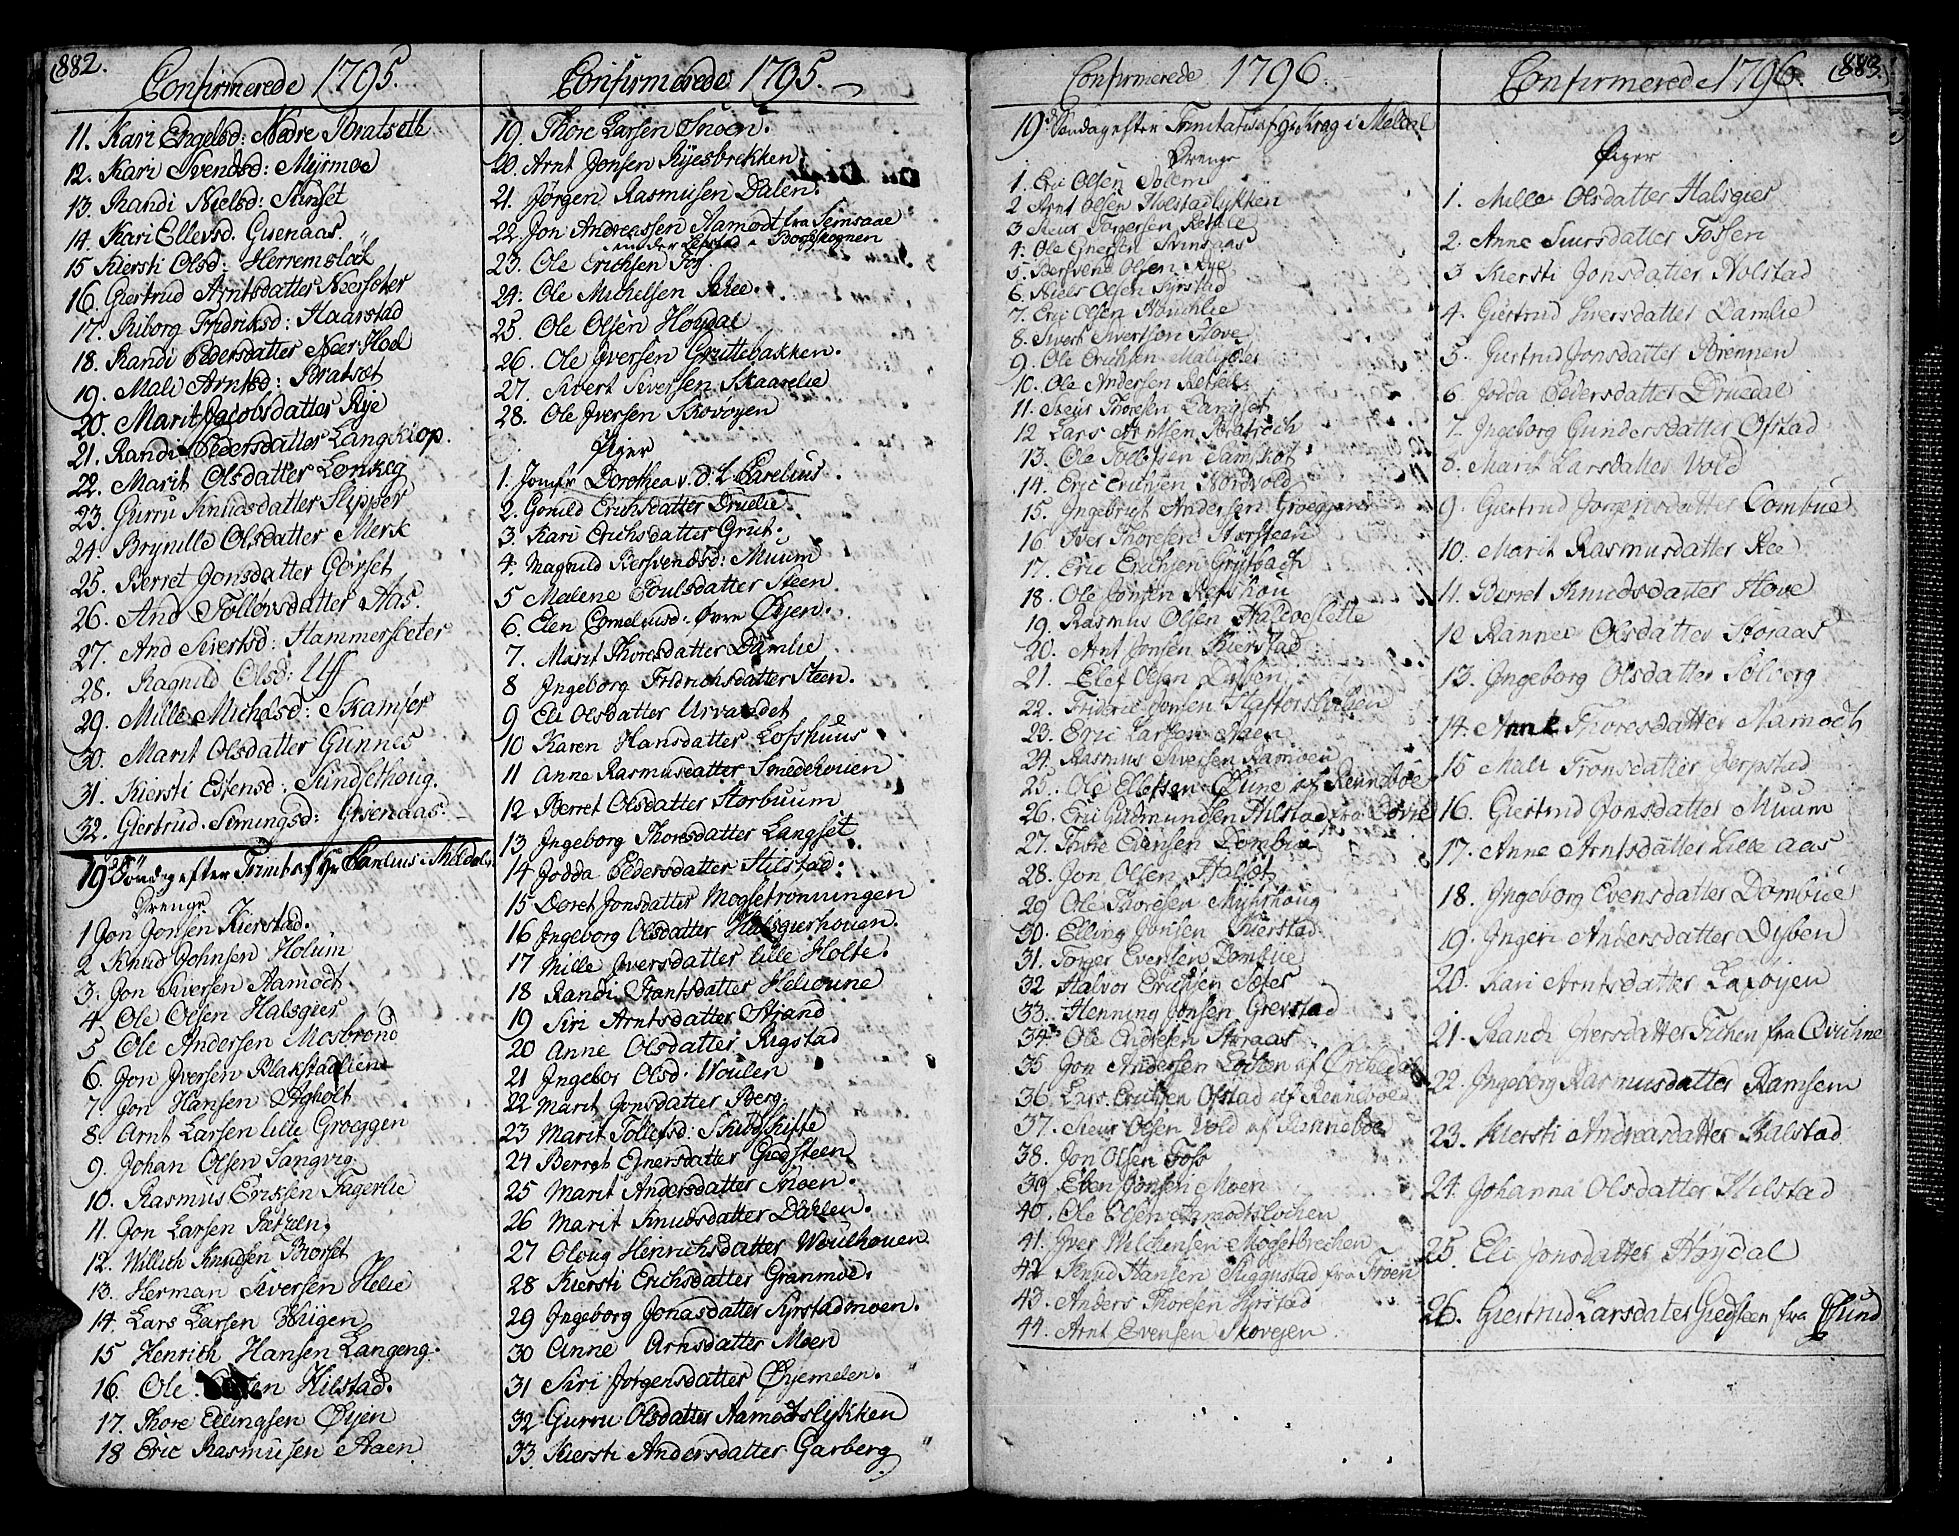 882.
Confirmerede 1795.
11. Kari Engelsd: Nedre Bratseth
12. Kari Svendsd: Myrmoe
13. Randi Nielsd: Sunset
14. Kari Ellevsd. Grisenaas
15 Kiersti Olsd: Herremsløk
16. Giertrud Arntsdatter Neersæter
17. Siborg Fridriksd: Haarstad
18. Randi Pedersdatter Neer Hoel
19. Mali Arntsd: Bratset
20. Marit Jacobsdatter Rye
21. Randi Pedersdatter Langklop.
22. Marit Olsdatter Lønkeg
23. Gurru Knudsdatter Slipper
24. Brynille Olsdatter Merk
25. Berret Jonsdatter Gorset
26. And Follovsdatter Aas.
27. And Sivertsd: Hammersæter
28. Ragnild Olsd: Uff
29. Mille Michelsd: Skamfer
30. Marit Olsdatter Gunnes
31. Kiersti Estensd: Sundsethoug.
32. Giertrud Simingsd: Grisenaas.
19de Søndag efter Trinit: af Hr Parelius i Meldal
Drenge
1 Jon Jonsen Kierstad.
2 Knud Johnsen Holum
3. Jon Siversen Aamodt
4 Ole Olsen Halsgier
5 Ole Andersen Mosbrond
6. Jon Iversen Blakstadlien
7. Jon Hansen Agholt
8. Arnt Larsen lille Groeggen
9. Johan Olsen Sangvig
10. Rasmus Eriksen Fagerlie
11. Jon Larsen
12. Willich Knudsen Borset
13. Herman Siversen Helie
14 Lars Larsen Huigen
15 Henrich Hansen Langeng.
16. Ole Hilstad.
17. Thore Ellingsen Øyen
18 Eric Rasmusen Aaen
Confirmerede 1795.
19. Thore Larsen Snoen.
20. Arnt Jonsen Ryesbrekken
21. Jørgen Rasmusen Dalen.
22. Jon Andreassen Aamodt fra Semsaae
under Lefstad i Borsskognen
23. Ole Erichsen Fos.
24. Ole Michelsen Ree.
25. Ole Olsen Høydal
26. Ole Iversen Gruttebakken.
27. Sivert Siversen Skaarelie
28. Ole Iversen Skovøyen
Piger
1. Jomfr Dorothea v. d. L Parelius.
2. Gonild Erichsdatter Druelie.
3. Kari Erichsdatter Grut.
4. Magnild Bersvendsd: Muum
5 Malene Poulsdatter Steen
6. Elen Corneliusd. Øvre Øyen.
7. Marit Thoresdatter Damlie
8 Ingeborg Fridrichsdatter Steen.
9 Eli Olsdatter Urvandet
10 Karen Hansdatter Lofshuus
11 Anne Rasmusdatter Smedehouen
12 Berret Olsdatter Storbuum
13 Ingeborg Thoresdatter Langset
14 Jodda Pedersdatter Hilstad.
15 Doret Jonsdatter Mogsetrønningen
16 Ingeborg Olsdatter Halsgierhouen.
17 Mille Iversdatter lille Holte.
18 Randi Frantsdatter Helioune
19 Siri Arntsdatter Strand
20 Anne Olsdatter Rigstad
21 Ingebor Olsd. Woulen
22 Marit Jonsdatter Berg
23 Marit Tollefsd: Skudshifte
24 Berret Einersdatter Giedsteen
25 Marit Andersdatter Snoen.
26 Marit Knudsdatter Dahlen.
27 Oloug Heinrichsdatter Woulhouen.
28 Kiersti Erichsdatter Granmoe.
29 Ingeborg Jonasdatter Syrstadmoen.
30 Anne Arnsdatter Moen
31 Siri Jørgensdatter Øyemelen.
32 Gurru Olsdatter Aamodtslykken
33. Kiersti Andersdatter Garberg
Confirmerede 1796.
19de Søndag efter Trinitatis af Hr Krag i Meldal
Drenge
1. Eric Olsen Solem
2 Arnt Olsen Holstadlykken
3 Siur Torgersen Reskle
4. Ole Enersen Svinsaas
5. Bersvend Olsen Rye
6. Niels Olsen Syrstad
7. Eric Olsen Hounlie
8. Sivert Sivertsen Hove
9. Ole Erichsen
10. Ole Andersen
11. Siur Thoresen Langset
12 Lars Arntsen
13. Ole Tollefsen
14. Eric Erichsen Nordvold
15. Ingebrigt Andersen Groeggen
16 Iver Thoresen
17. Eric Erichsen Grutbach
18. Ole Jonsen Refshou
19. Rasmus Olsen Halvorslette
20. Arnt Jonsen Kierstad
21. Elef Olsen
22. Frideric Jonsen
23. Eric Larsen Aaen
24. Rasmus Siversen Ramoen
25. Ole Ellefsen Qvine af Renneboe
26. Eric Gudmundsen Hilstad fra Dovre
27. Thore Evensen Dombue
28. Jon Olsen Halset
29 Ole Thoresen Myhrhoug
30. Elling Jonsen Kierstad
31. Torger Evensen Dombue
32 Halvor Erichsen
33. Henning Jonsen Grevstad
34. Ole Endresen Storaas
35 Jon Andersen Løcken af Orchedal
36. Lars Erichsen Ofstad af Renneboe
37. Siur Olsen Vold af Renneboe
38. Jon Olsen Foss
39 Eben Jonsen Moen
40. Ole Olsen Aamodtslochen
41. Iver Willichsen Mogetbrechen
42 Knud Hansen Siggustad fra
43. Anders Thoresen Syrstad
44. Arnt Evensen Skovejen
Confirmerede 1796.
883.
Piger
1. Mille Olsdatter Halsgier
2. Anne Siursdatter Fossen
3 Kiersti Jonsdatter Holstad
4. Giertrud Siversdatter Damlie
5. Giertrud Jonsdatter Brennen
6 Jodda Pedersdatter Druedal
7 Ingeborg Gundersdatter Ofstad
8. Marit Larsdatter Vold
9. Giertrud Jorgensdatter Combue
10. Marit Rasmusdatter Ree
11. Berret Knudsdatter Hove
12 Rannei Olsdatter Storaas
13. Ingeborg Olsdatter Solberg
14. Anne Thoresdatter Aamodt
15 Mali Tronsdatter Jerpstad
16. Giertrud Jonsdatter Muum
17. Anne Arntsdatter Lille Aas
18. Ingeborg Evensdatter Dombue
19. Ingeri Andersdatter Disben
20. Kari Arntsdatter
21. Randi Iversdatter Fichen fra Qvichne
22. Ingeborg Rasmusdatter Ramsem
23. Kiersti Andreasdatter Kalstad
24. Johanna Olsdatter Hilstad
25. Eli Jonsdatter Høydal
26. Giertrud Larsdater Giedsteen fra Øslund